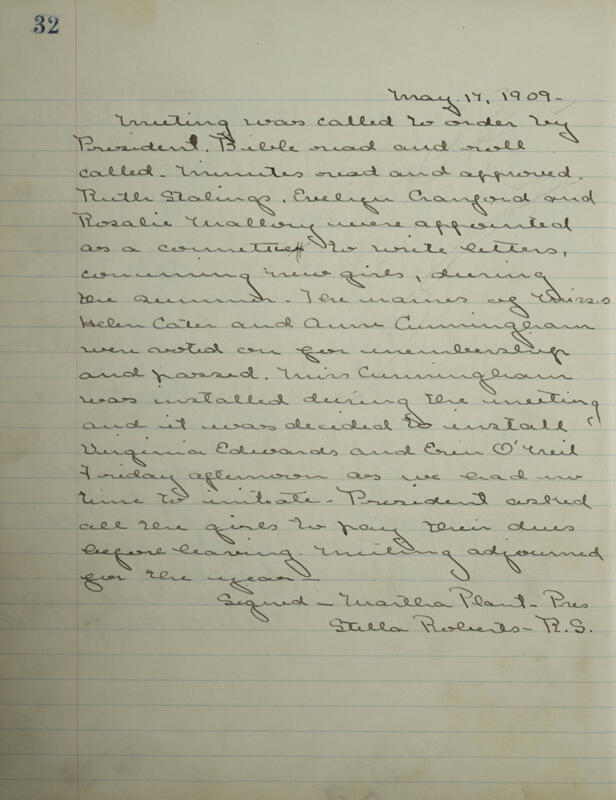 32
May 17, 1909-
Meeting was called to order by
President. Bible read and roll
called. Minutes read and approved.
Ruth Stalings, Evelyn Cranford and
Rosalie Mallory were appointed
as a committee to write letters,
concerning new girls, during
the summer. The names of Misses
Helen Cater and Anne Cunningham
were voted on for membership
and passed. Miss Cunningham
was installed during the meeting
and it was decided to install
Virginia Edwards and Erin O'Neil
Friday afternoon as we had no
time to initiate - President asked
all the girls to pay their dues
before leaving. Meeting adjourned
for the year-
Signed - Martha Plant - Pres
Stella Roberts - R.S.